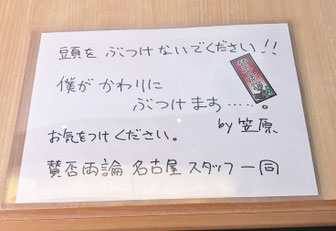 頭を ぶつけないでください!!
僕が かわりに
ぶつけます……。
by 笠原
お気をつけください。
賛否両論 名古屋 スタッフ一同